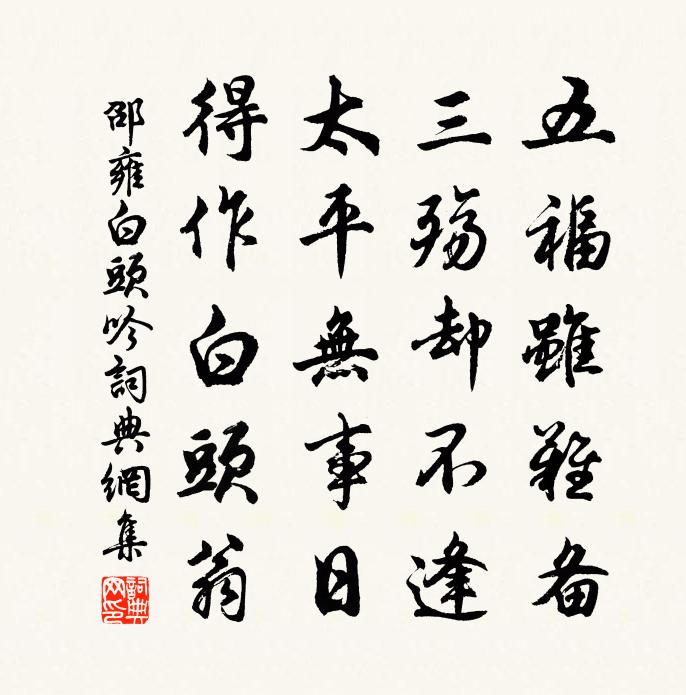 五福雖難备
三殤却不逢
太平無事日
得作白頭翁
邵雍白頭吟詞典網集
詞典网印